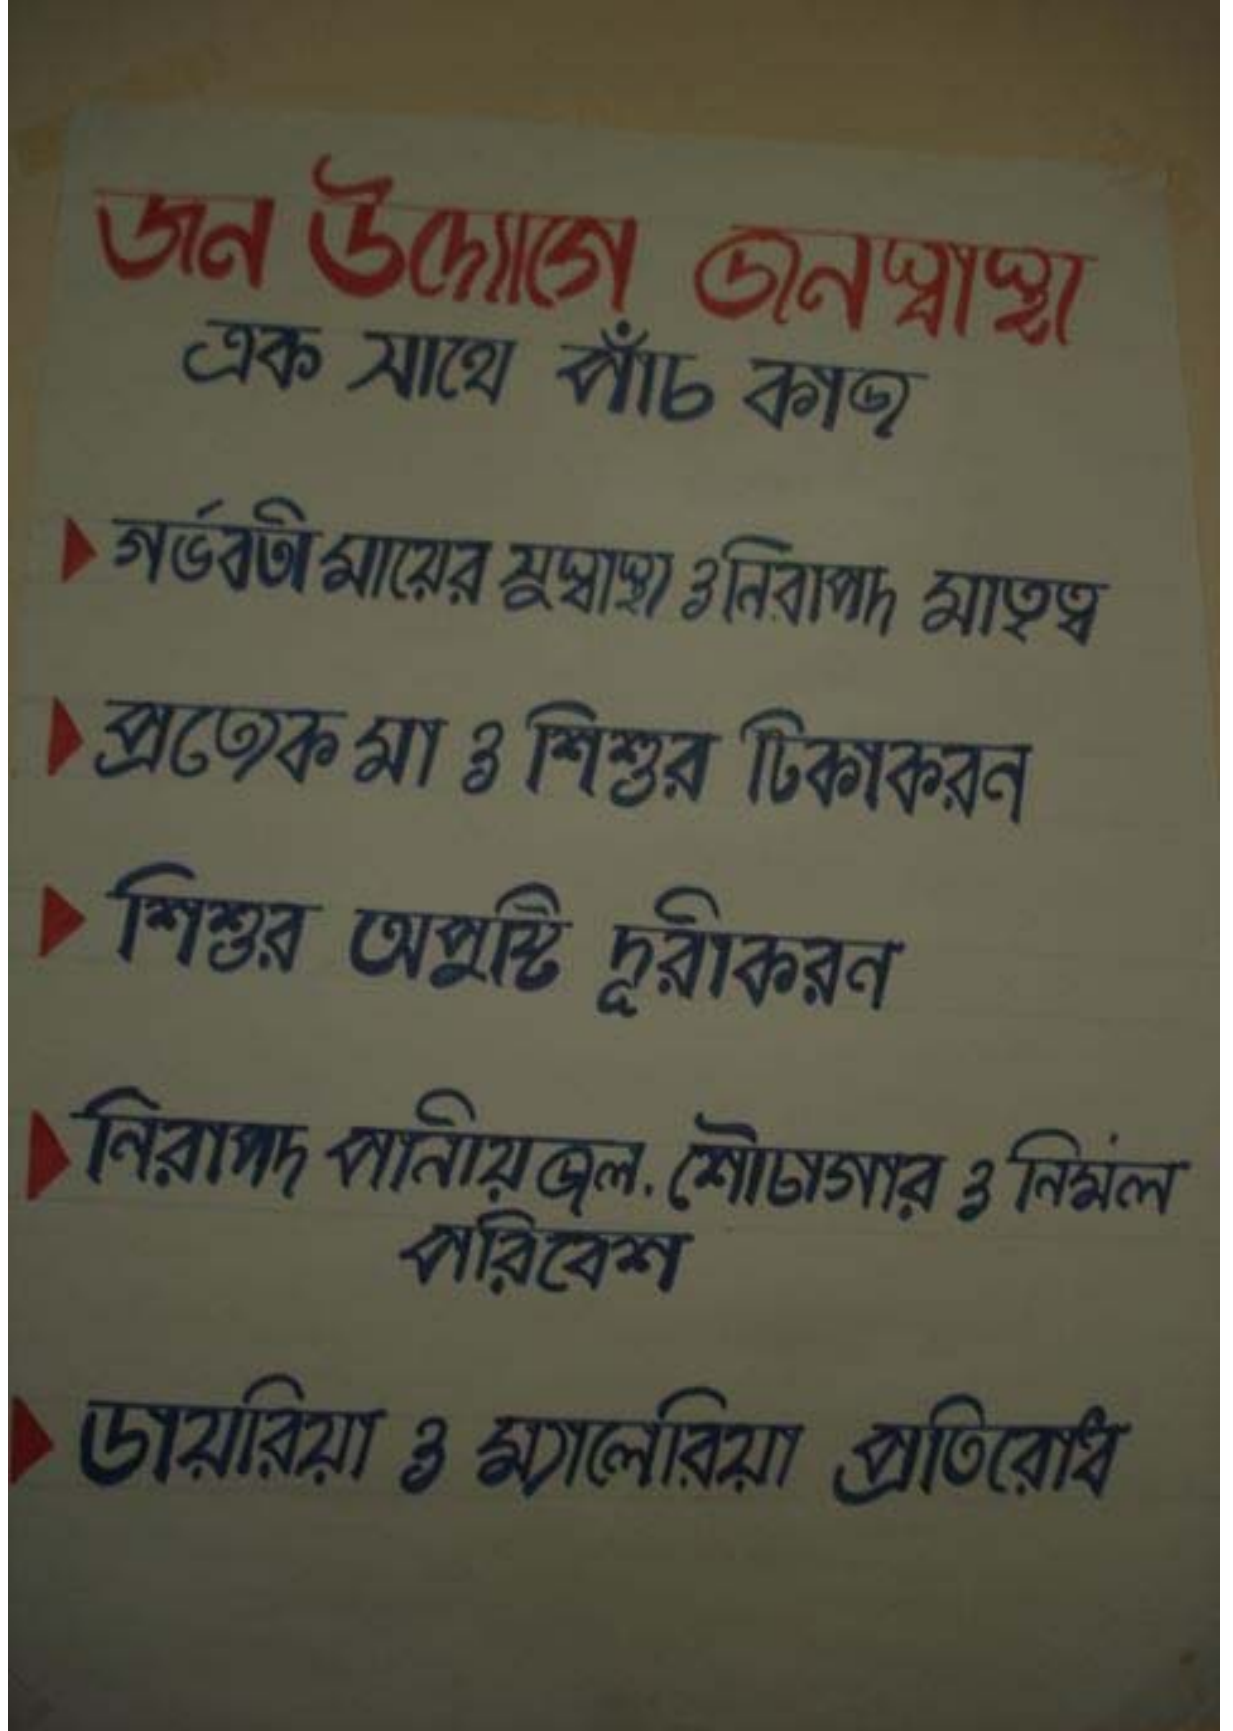 জন উদ্যোগে জনস্বাস্থ্য
এক সাথে পাঁচ কাজ
গর্ভবতী মায়ের সুস্বাস্থ্য ও নিরাপদ মাতৃত্ব
প্রত্যেক মা ও শিশুর টিকাকরন
শিশুর অপুষ্টি দূরীকরন
নিরাপদ পানীয় জল, শৌচাগার ও নির্মল
পরিবেশ
ডায়রিয়া ও ম্যালেরিয়া প্রতিরোধ